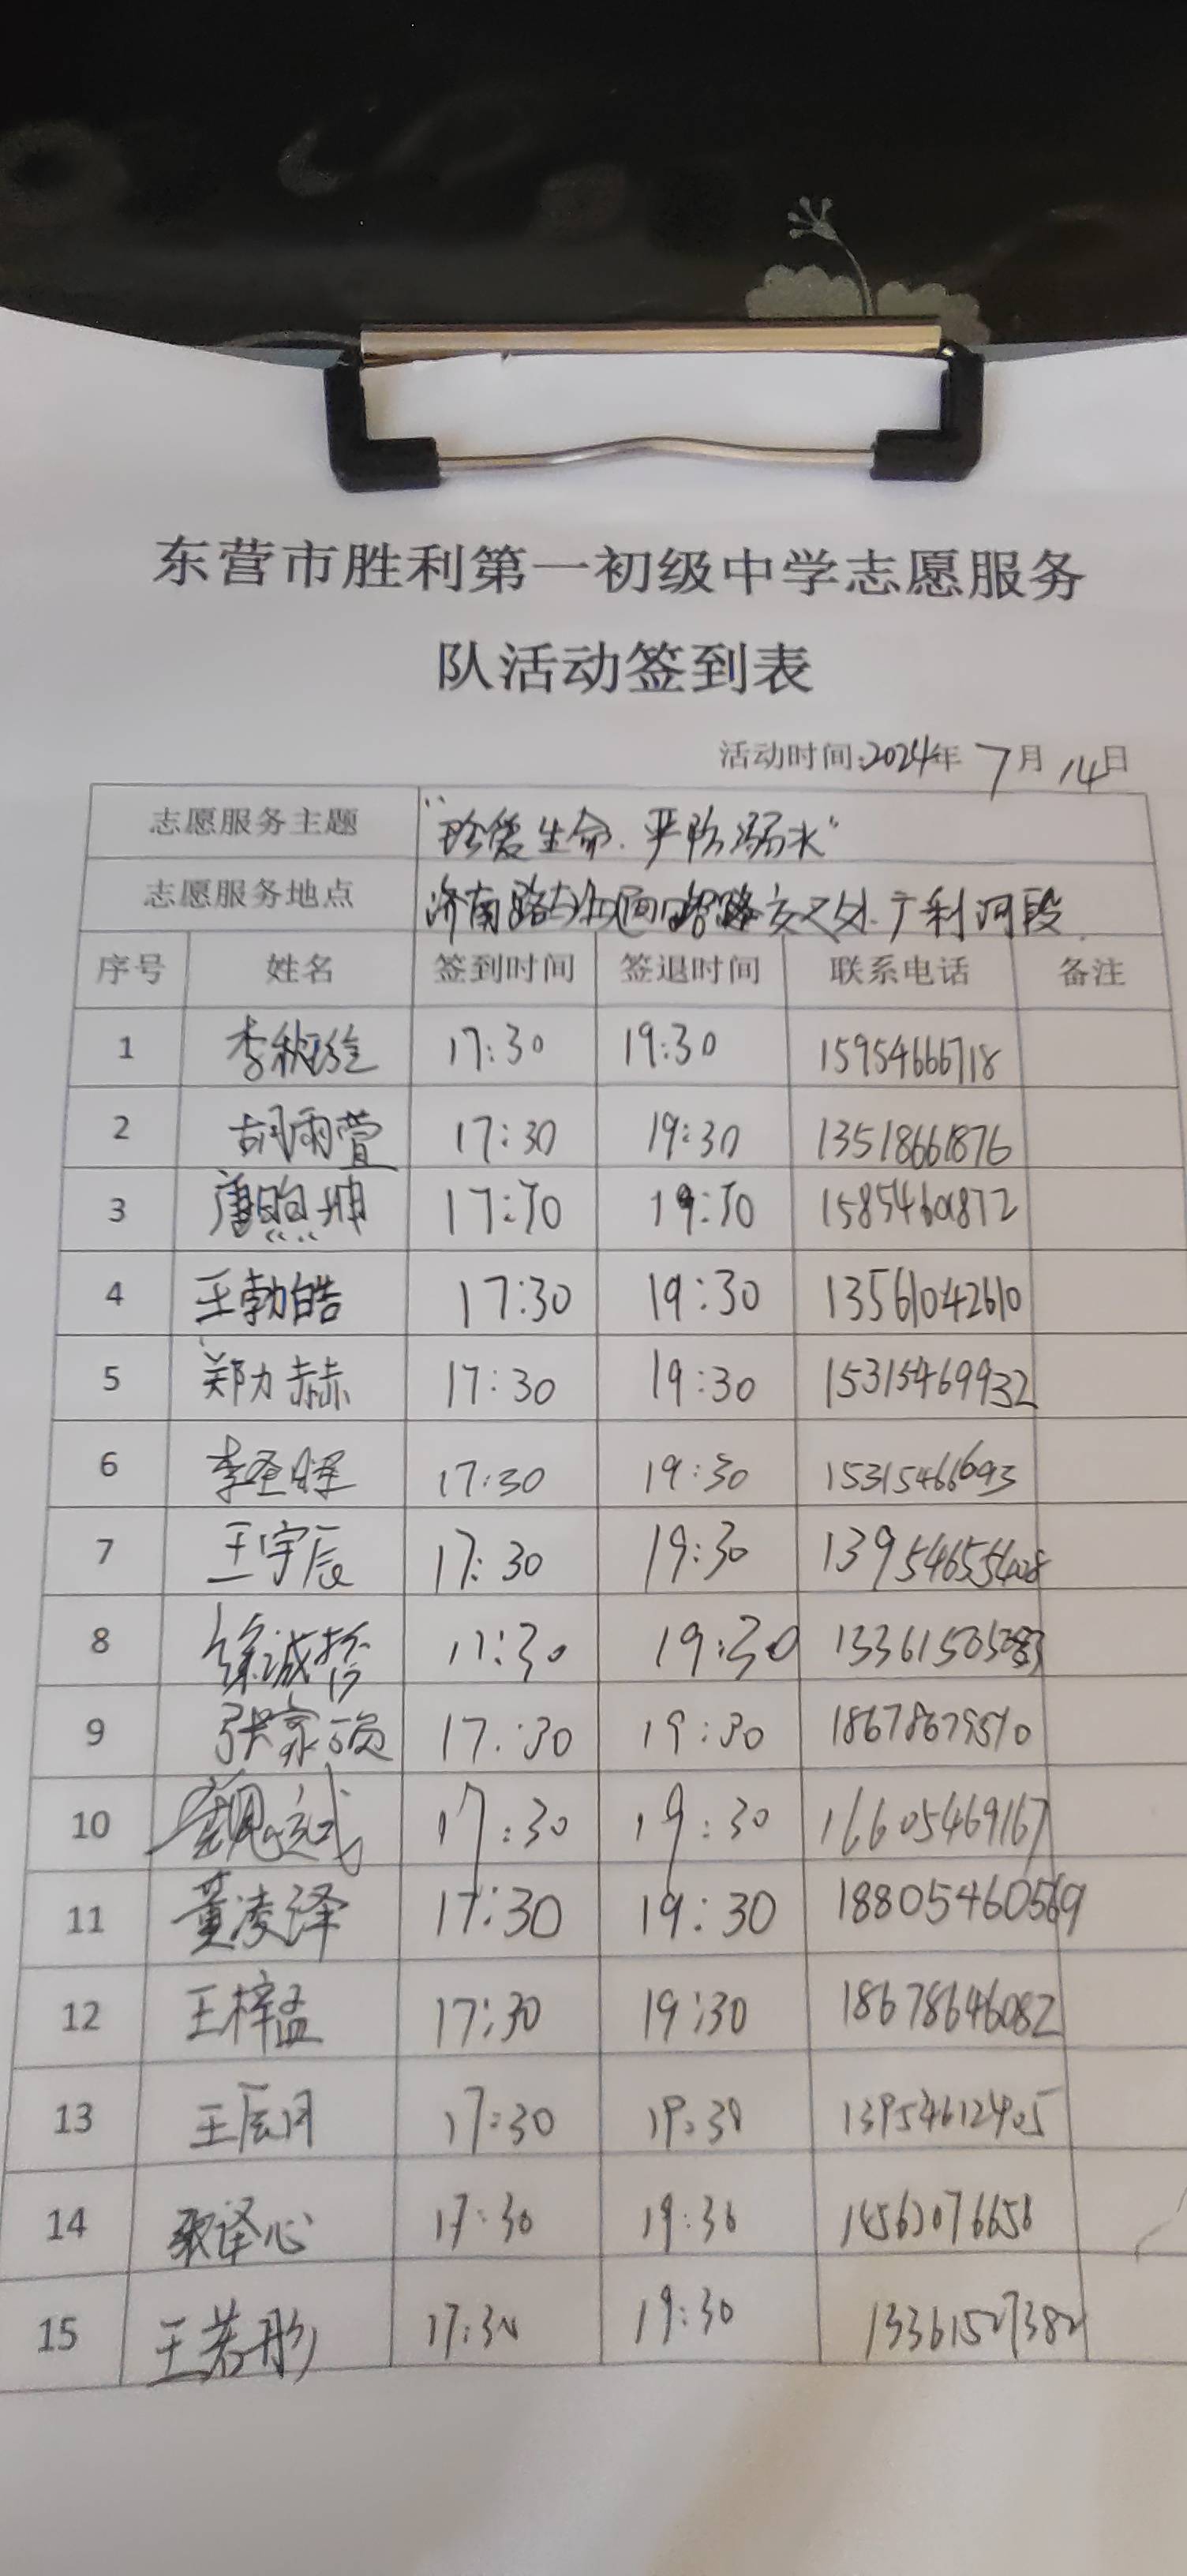 东营市胜利第一初级中学志愿服务
队活动签到表
活动时间:2024年 7月 14日
志愿服务主题 "珍爱生命.严防溺水"
志愿服务地点 济南路与 路交叉处.广利河段
序号 姓名 签到时间 签退时间 联系电话 备注
1 李秋 17:30 19:30 15954666718
2 胡雨萱 17:30 19:30 13518661876
3 唐煦坤 17:30 19:30 15854601872
4 王勃皓 17:30 19:30 13561042610
5 郑力赫 17:30 19:30 15315469932
6 李圣晖 17:30 19:30 15315466693
7 王宇辰 17:30 19:30 13954655408
8 徐诚 17:30 19:30
9 张家硕 17:30 19:30 18678679510
10 17:30 19:30 16605469167
11 董凌泽 17:30 19:30 18805460569
12 王梓孟 17:30 19:30 18678646082
13 王辰月 17:30 19:30 13954612405
14 译心 17:30 19:30
15 王若彤 17:30 19:30 13361527382